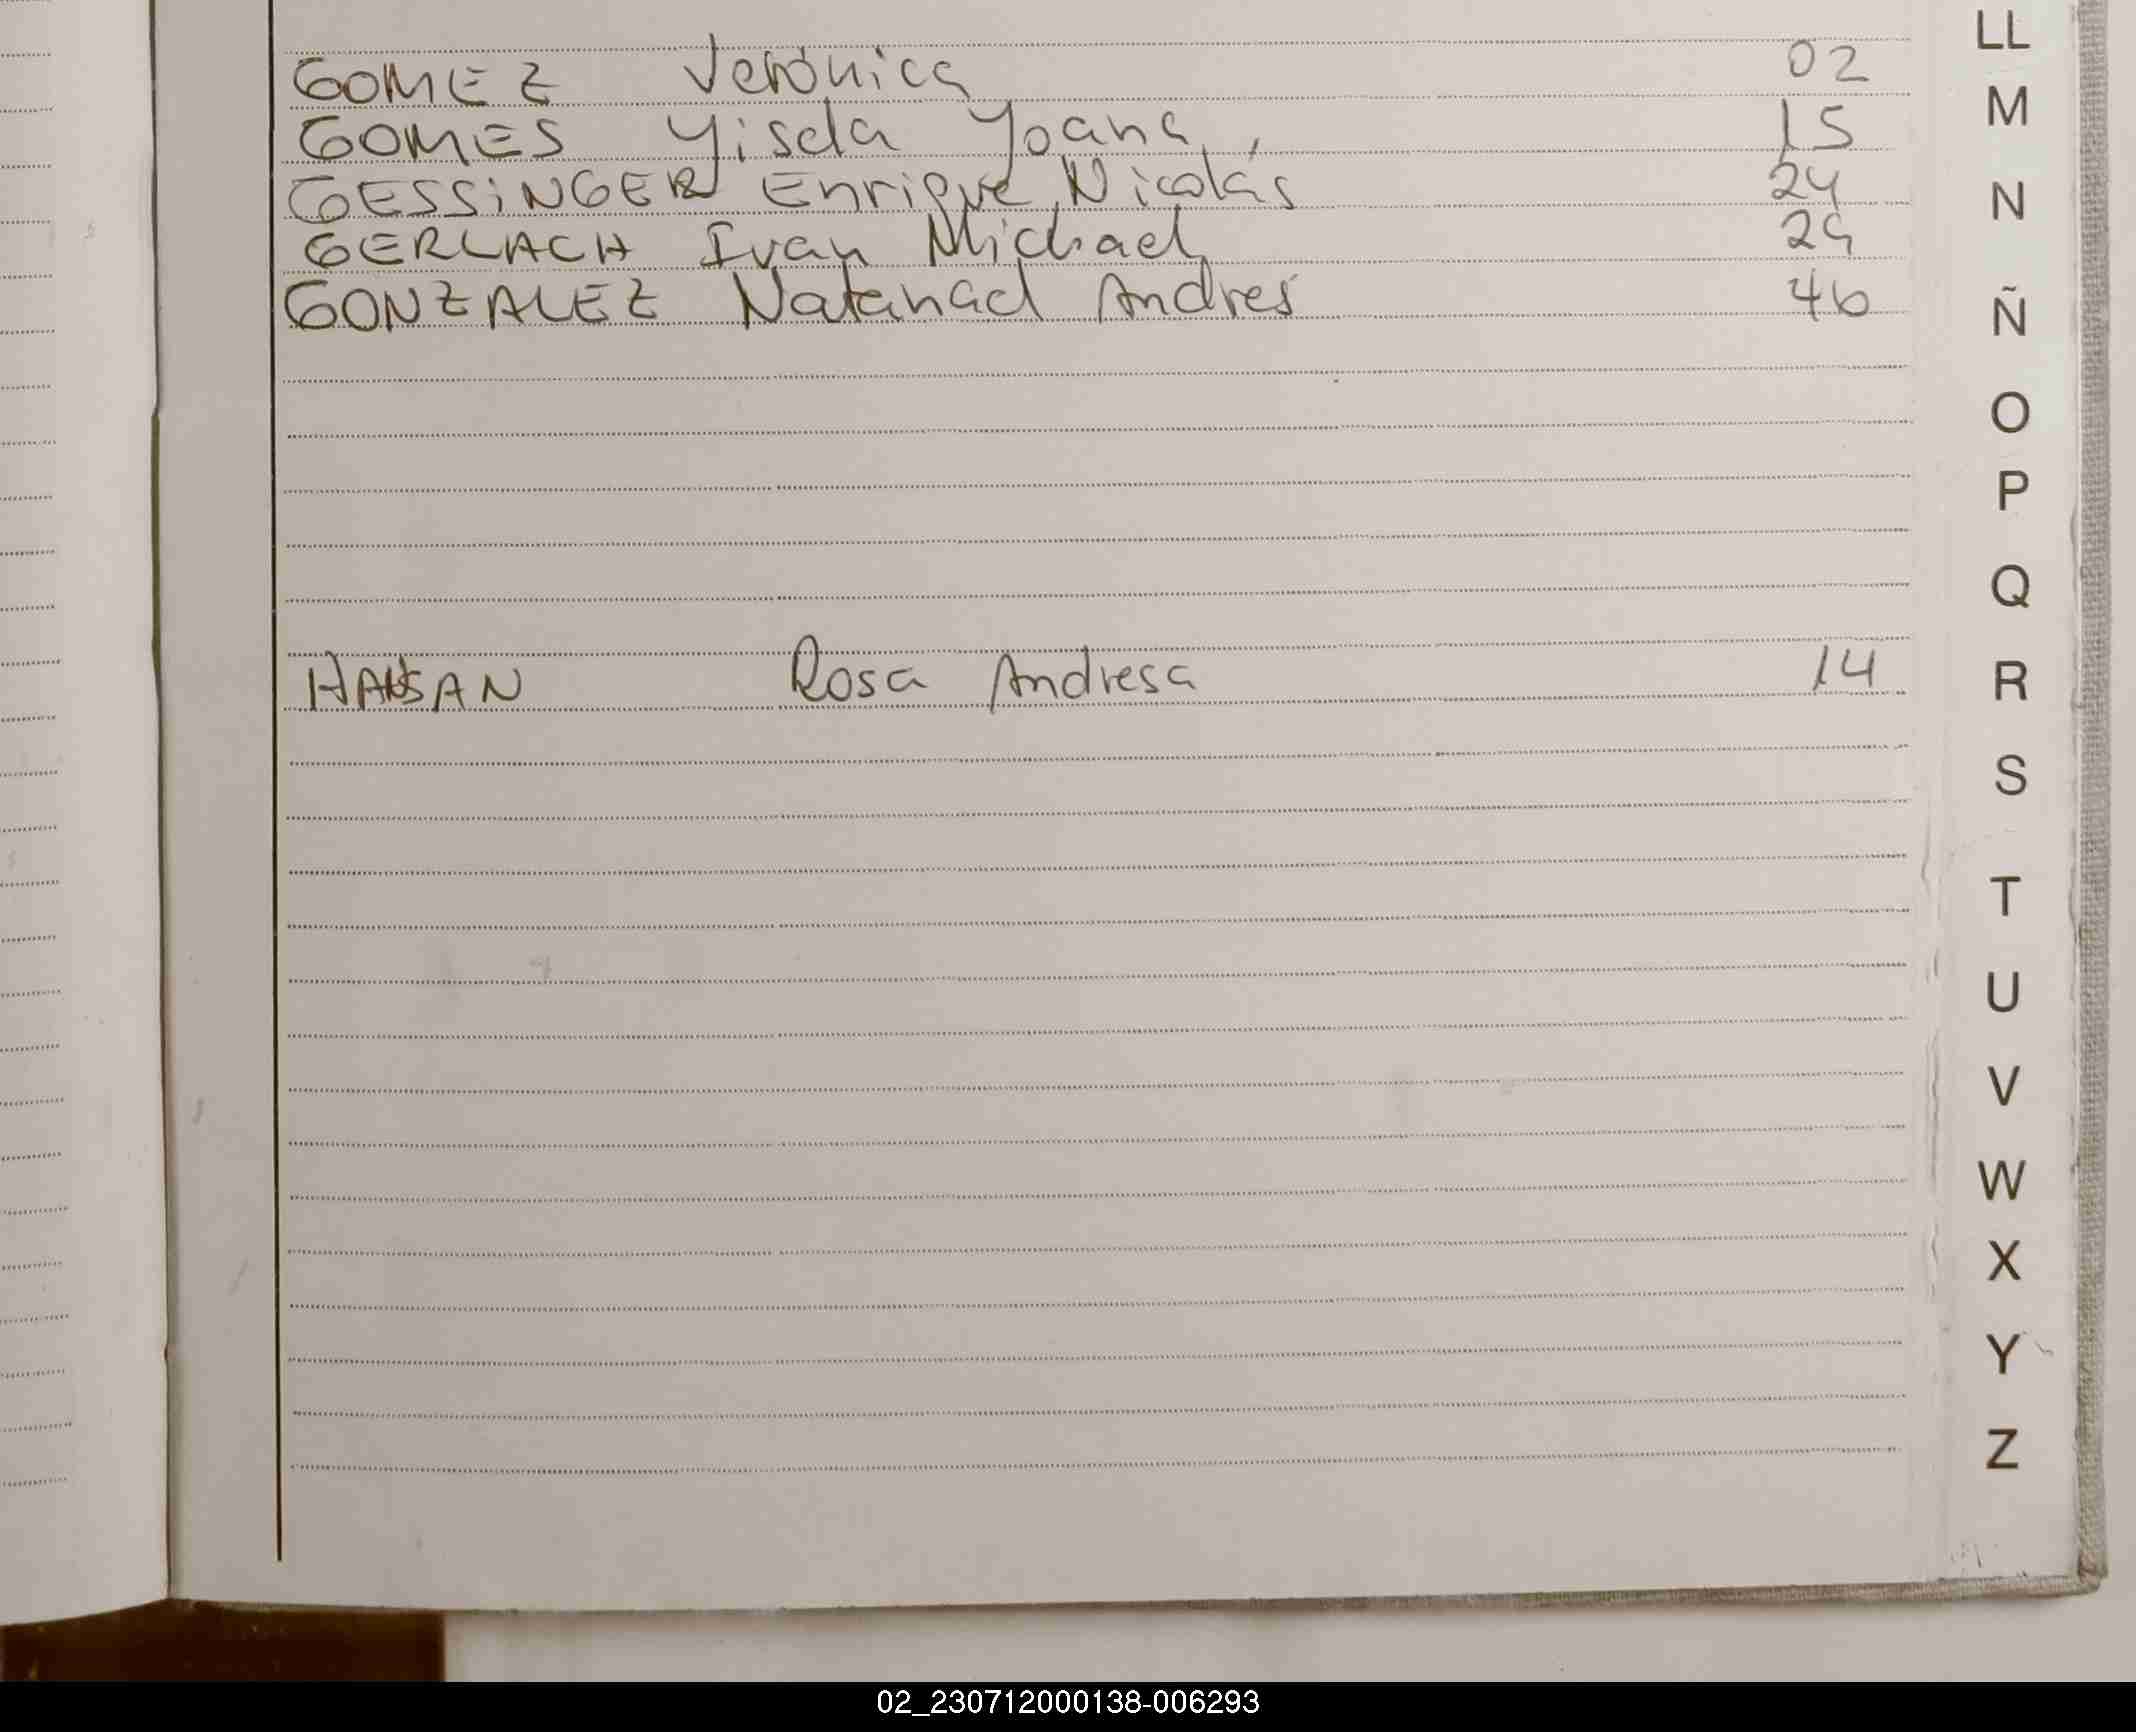 LL
GOMEZ Verónica 02
M
GOMES Yisela Yoana 15
GESSINGER Enrique Nicolás 24
N
GERLACH Ivan Michael 29
GONZALEZ Natanael Andres 46
Ñ
O
P
Q
HANSAN Rosa Andresa 14
R
S
T
U
V
W
X
Y
Z
02_230712000138-006293